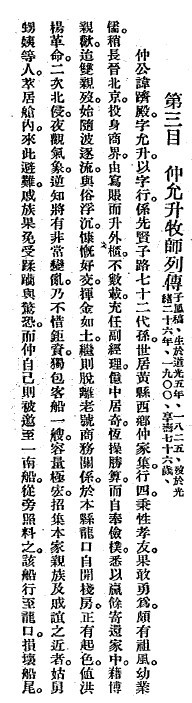 第三目　仲允升牧師列傳
子遥橋、生於道光五年、一八二五、歿於光
緒二十六年、一九〇〇、享壽七十六歲、
仲公諱蹟殿字允升以字行係先賢子路七十二代孫世居黃縣西鄉仲家集行四秉性孝友果敢勇爲頗有祖風幼業
儒。稍長晉北京。投身商界。由寫賬而升外櫃。不數載充任副經理。億中居奇。恆操勝算。而自奉儉樸。悉以贏餘寄還家中。藉博
親歡。迨雙親歿。始隨波逐流。與俗浮沉。慷慨好交。揮金如土。繼則脫離老號商務關係。於本縣龍口自開棧房。正有起色。值洪
楊革命。二次北侵。夜觀氣象。逆知將有非常變亂。乃不惜鉅資。獨包客船一艘。容量極宏。招集本家親族及戚誼之近者。姑舅
甥姨等人。萃居艙內。來此避難。戚族果免受蹂躪與驚恐。而仲自己則被邀至一南船。從旁照料之。該船行至龍口。損壞船尾。